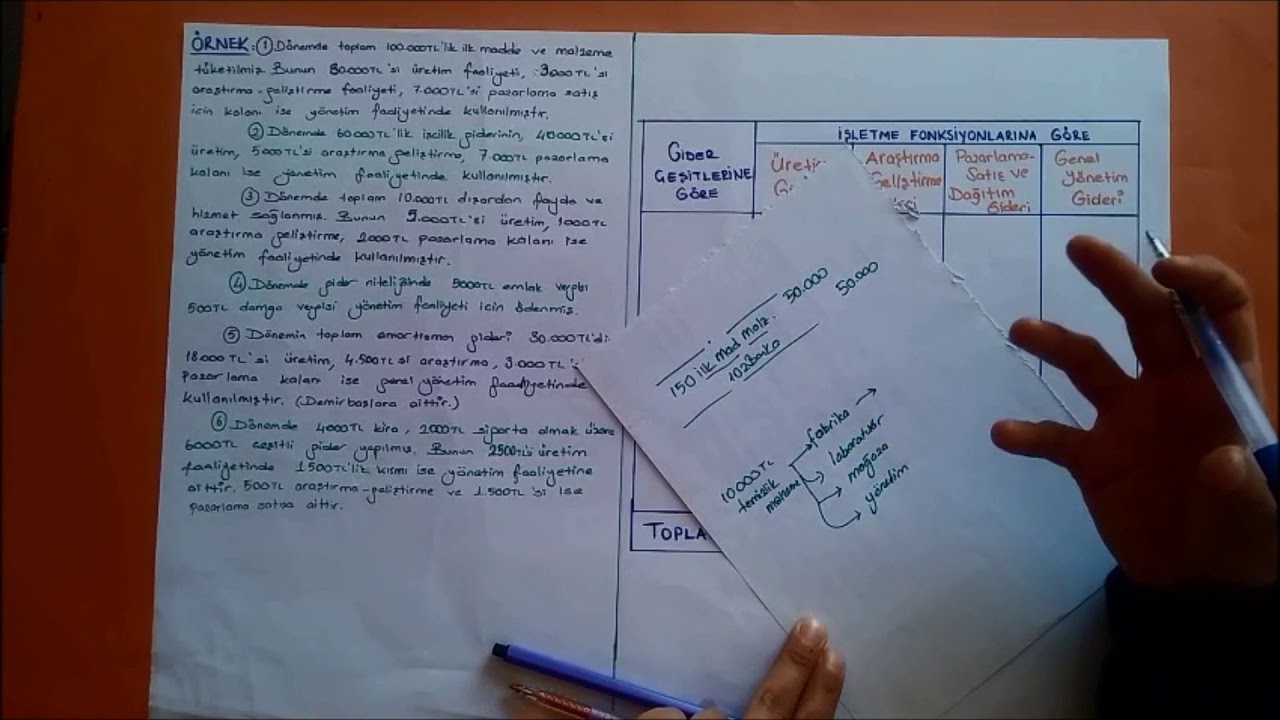 ÖRNEK: ① Dönemde toplam 100.000TL'lik ilk madde ve malzeme
tüketilmiş. Bunun 80.000TL'si üretim faaliyeti, 3000TL'si
araştırma-geliştirme faaliyeti, 7.000TL'si pazarlama satış
için kalanı ise yönetim faaliyetinde kullanılmıştır.
② Dönemde 60.000TL'lik işcilik giderinin, 40000TL'si
üretim, 5000TL'si araştırma geliştirme, 7.000TL pazarlama
kalanı ise yönetim faaliyetinde kullanılmıştır.
③ Dönemde toplam 10.000TL dışardan fayda ve
hizmet sağlanmış. Bunun 5.000TL'si üretim, 1000TL
araştırma geliştirme, 2000TL pazarlama kalanı ise
yönetim faaliyetinde kullanılmıştır.
④ Dönemde gider niteliğinde 5000TL emlak vergisi
500TL damga vergisi yönetim faaliyeti için ödenmiş.
⑤ Dönemin toplam amortisman gideri 30.000TL'dir
18.000TL'si üretim, 4.500TL si araştırma, 3.000TL
pazarlama kalanı ise genel yönetim faaliyetinde
kullanılmıştır. (Demirbaşlara aittir.)
⑥ Dönemde 4000TL kira, 2000TL sigorta olmak üzere
6000TL çeşitli gider yapılmış. Bunun 2500TL'si üretim
faaliyetinde 1500TL'lik kısmı ise yönetim faaliyetine
aittir. 500TL araştırma-geliştirme ve 1.500TL'si ise
pazarlama satışa aittir.
GİDER ÇEŞİTLERİNE GÖRE
İŞLETME FONKSİYONLARINA GÖRE
Üreti
Araştırma
Geliştirme
Pazarlama-
Satış ve
Dağıtım
Gideri
Genel
Yönetim
Gideri
TOPLA
150 ilk mad malz. 50.000
102 Banka 50.000
10.000TL
temizlik
fabrika
laboratuvar
mağaza
yönetim